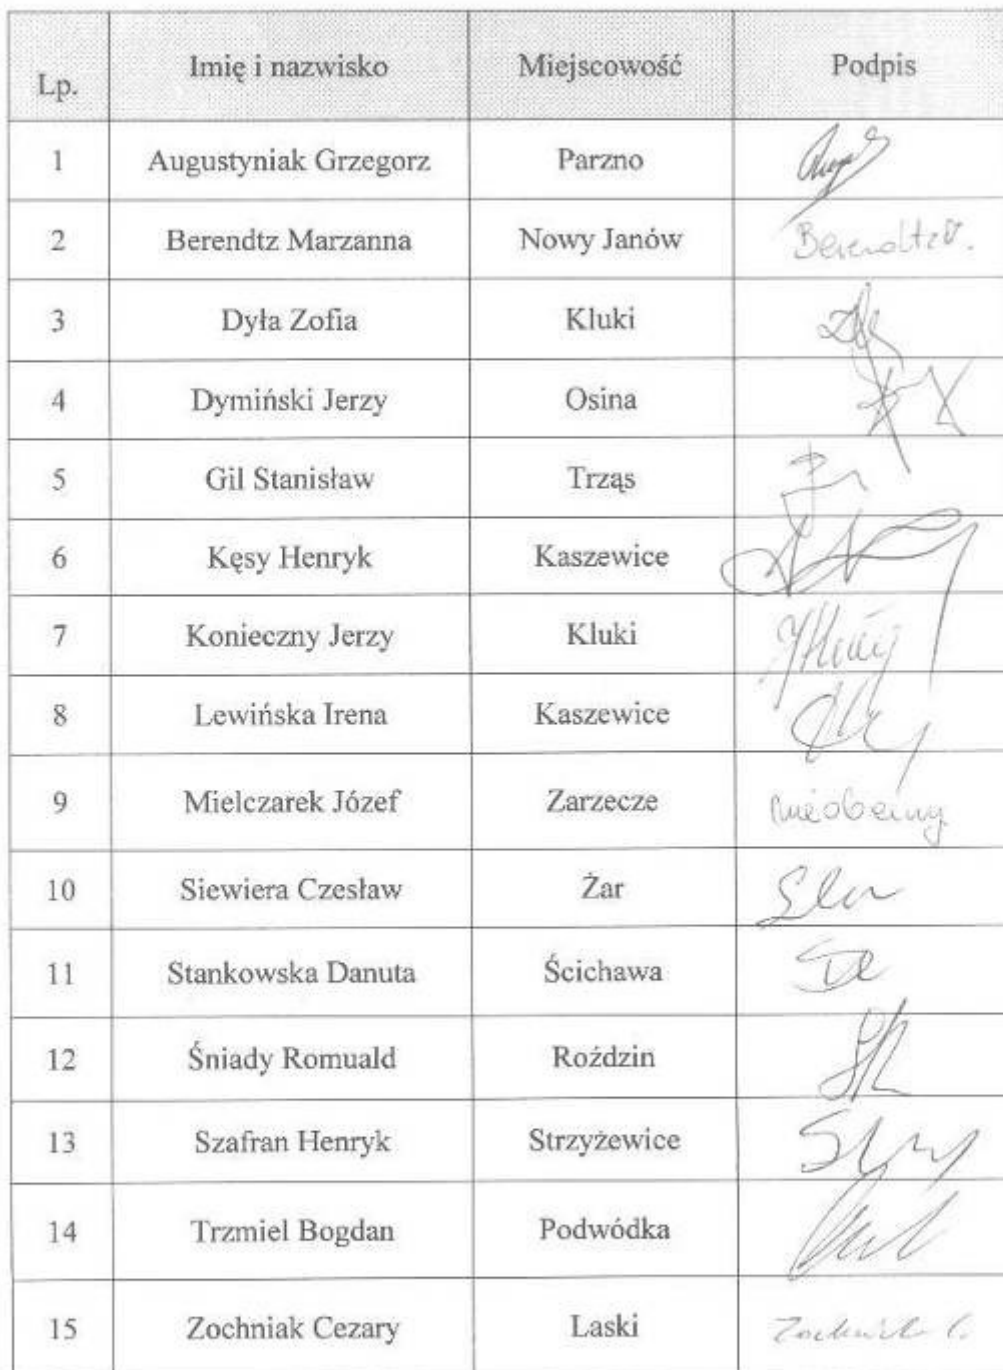 Lp. Imię i nazwisko Miejscowość Podpis
1 Augustyniak Grzegorz Parzno
2 Berendtz Marzanna Nowy Janów Berendtz
3 Dyła Zofia Kluki
4 Dymiński Jerzy Osina
5 Gil Stanisław Trząs
6 Kęsy Henryk Kaszewice
7 Konieczny Jerzy Kluki
8 Lewińska Irena Kaszewice
9 Mielczarek Józef Zarzecze nieobecny
10 Siewiera Czesław Żar
11 Stankowska Danuta Ścichawa
12 Śniady Romuald Roździn
13 Szafran Henryk Strzyżewice
14 Trzmiel Bogdan Podwódka
15 Zochniak Cezary Laski Zochniak C.